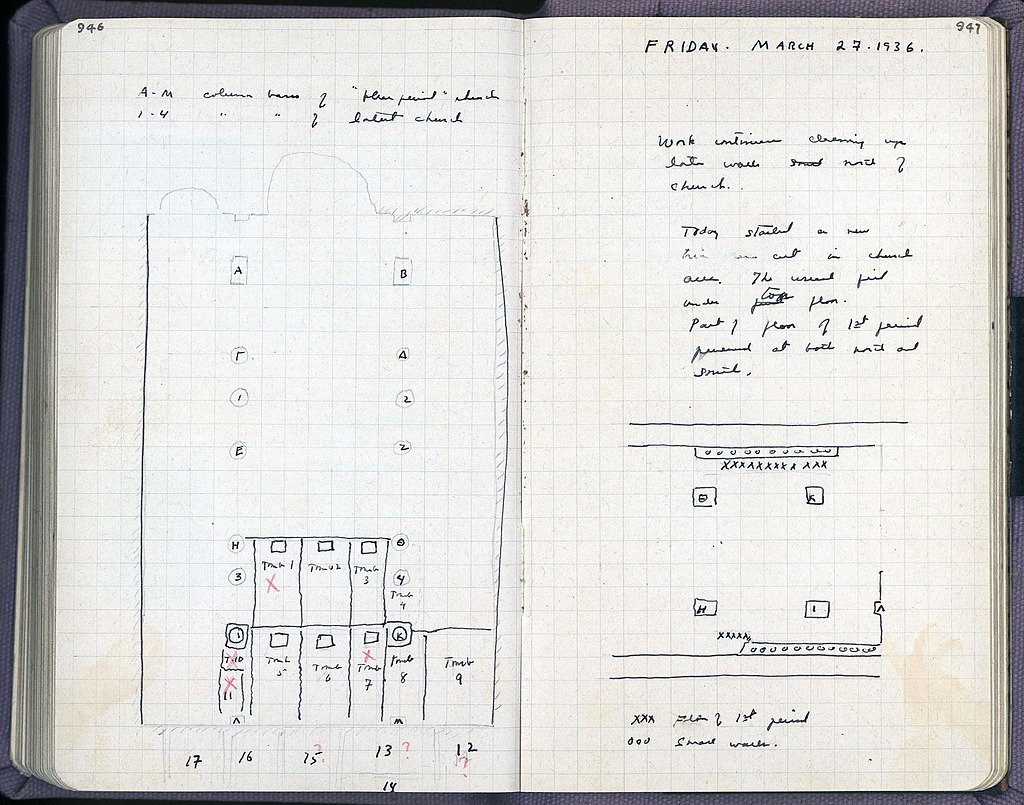 946
A-M column bases of "          " church
1-4 " " of latest church
A B
Γ Δ
1 2
E Z
H Θ
Tomb 1 Tomb 2 Tomb 3
3 4
Tomb 4
I K
T.10 Tomb 5 Tomb 6 Tomb 7 Tomb 8 Tomb 9
11
Λ M
17 16 15? 13? 12?
14
947
FRIDAY. MARCH 27.1936.
Work continues cleaning up
late walls north of
church.
Today started a new
cut in church
area. The usual
under top floor.
Part of floor of 1st period
preserved at both north and
south.
xxxxxxxxx xxx
Θ K
H I Λ
xxxxx
xxx Floor of 1st period
ooo Small walls.